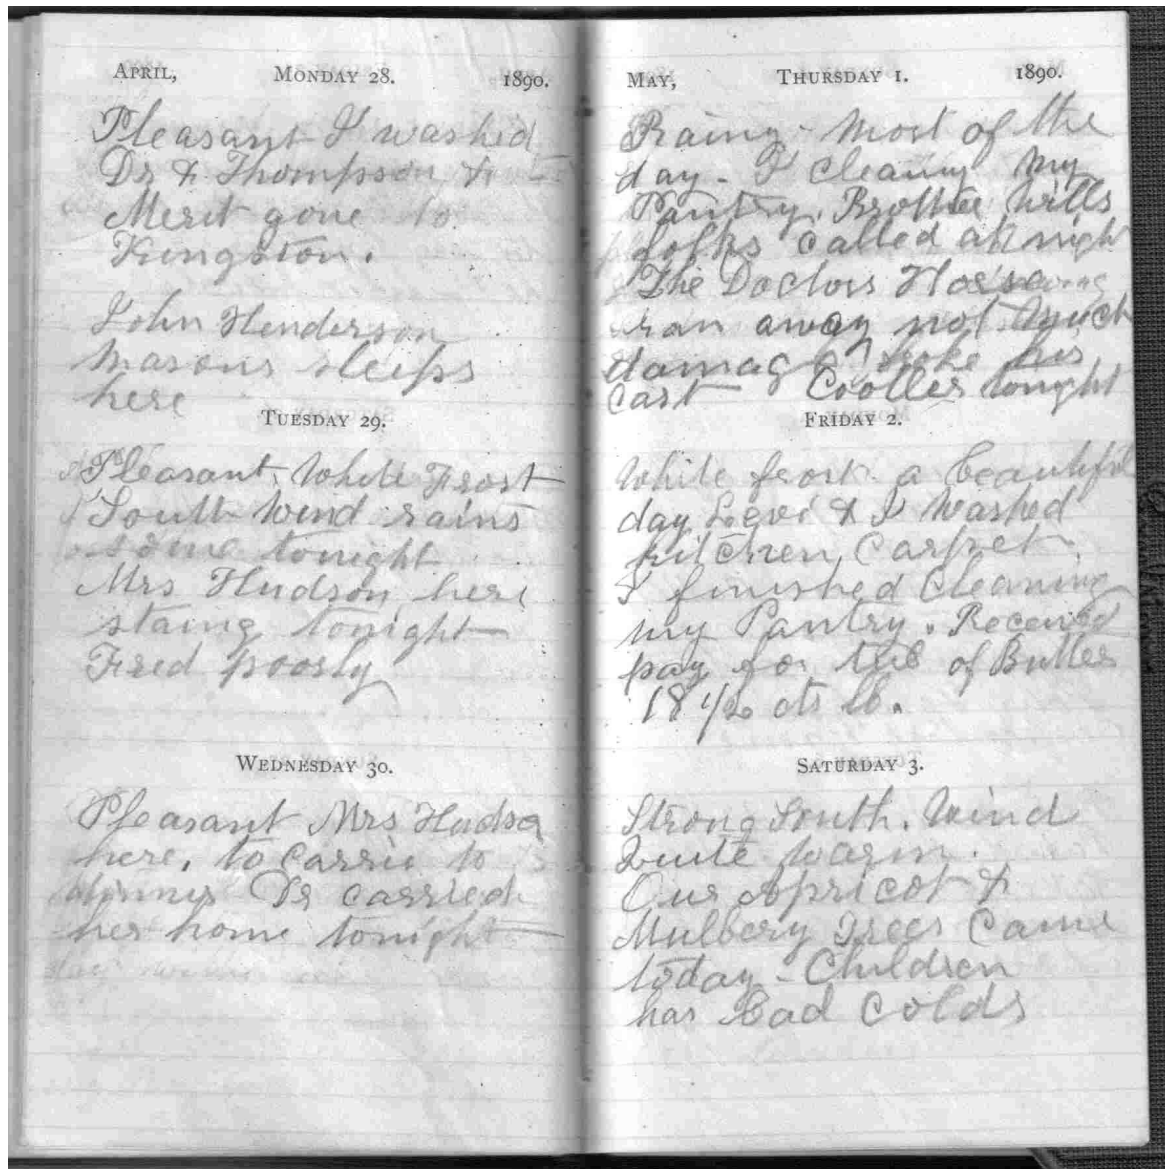 APRIL, MONDAY 28. 1890.
Pleasant I washed
Dr & Thompson &
Merit gone to
Kingston.
John Henderson
masons sleeps
here
TUESDAY 29.
Pleasant, White Frost
South Wind rains
some tonight
Mrs Hudson here
staing tonight
Fred poorly
WEDNESDAY 30.
Pleasant Mrs Hudson
here, to Carrie to
Dr carried
her home tonight
MAY, THURSDAY 1. 1890.
Rainy - most of the
day - I cleaning my
Pantry. Brother Wills
folks called at night
The Doctors Horse
ran away not much
damage broke his
cart Cooller tonight
FRIDAY 2.
White frost a beautiful
day Levi & I washed
kitchen Carpet.
I finished Cleaning
my Pantry. Received
pay for of Butter
18 1/2 cts lb.
SATURDAY 3.
Strong South. Wind
Quite warm.
Our Apricot &
Mulbery Trees Came
today - Children
has bad colds